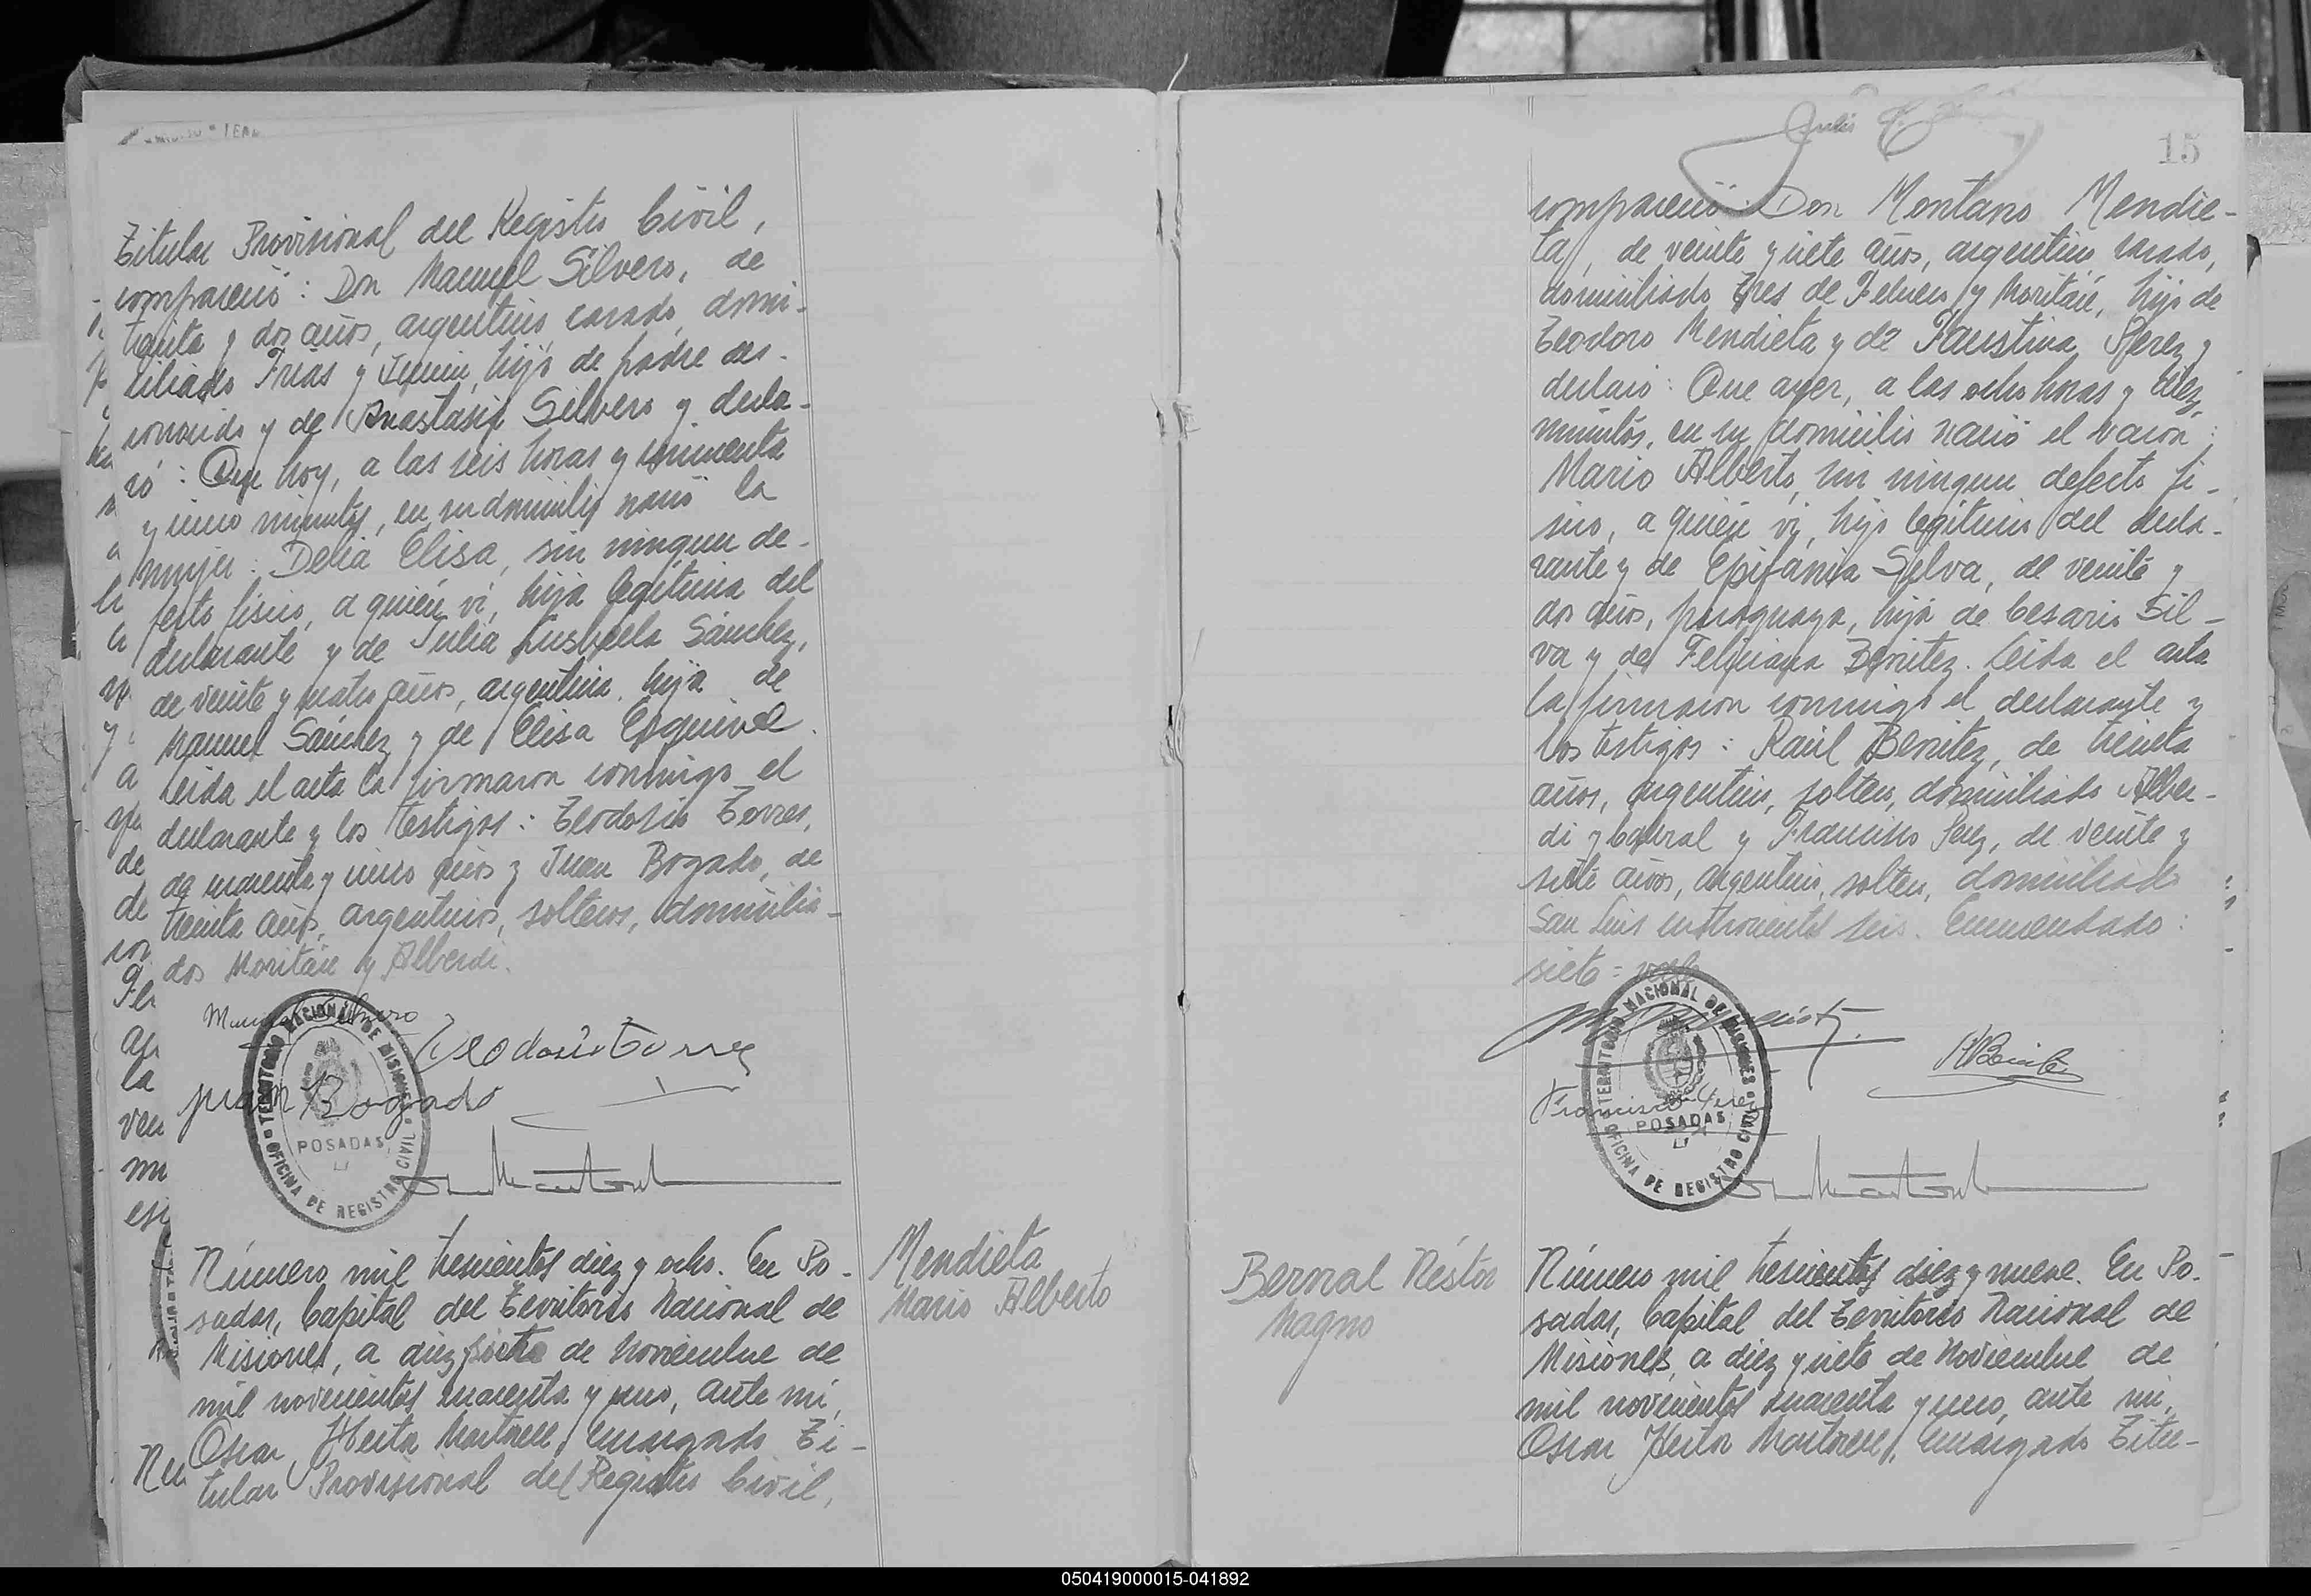 Titular Provisional del Registro Civil,
compareció: Don Manuel Silvero, de
treinta y dos años, argentino, casado, domi-
ciliado Frias y Junin, hijo de padre des-
conocido y de Anastasia Silvero y decla-
ró: Que hoy, a las seis horas y cincuenta
y cinco minutos, en su domicilio nació la
mujer: Delia Elisa, sin ningun de-
fecto físico, a quién ví, hija legítima del
declarante y de Julia Sánchez,
de veinte y cuatro años, argentina, hija de
Manuel Sánchez y de Elisa Esquivel.
Leída el acta la firmaron conmigo el
declarante y los testigos: Teodosio Torres,
de cuarenta y cinco años y Juan Bogado, de
treinta años, argentinos, solteros, domicilia-
dos Moritán y Alberdi.
Manuel Silvero
Teodosio Torres
Juan Bogado
TERRITORIO NACIONAL DE MISIONES
POSADAS
OFICINA DE REGISTRO CIVIL
Número mil trescientos diez y ocho. En Po-
sadas, Capital del Territorio Nacional de
Misiones, a diez y siete de Noviembre de
mil novecientos cuarenta y uno, ante mí,
Oscar Héctor Martorell, Encargado Ti-
tular Provisional del Registro Civil,
Mendieta
Mario Alberto
15
compareció: Don Montano Mendie-
ta, de veinte y siete años, argentino, casado,
domiciliado Tres de Febrero y Moritán, hijo de
Teodoro Mendieta y de Faustina Perez y
declaró: Que ayer, a las ocho horas y diez
minutos, en su domicilio nació el varón:
Mario Alberto, sin ningun defecto fí-
sico, a quién ví, hijo legítimo del decla-
rante y de Epifania Silva, de veinte y
dos años, paraguaya, hija de Cesario Sil-
va y de Feliciana Benitez. Leída el acta
la firmaron conmigo el declarante y
los testigos: Raúl Benitez, de treinta
años, argentino, soltero, domiciliado Alber-
di y Cabral y Francisco Perez, de veinte y
siete años, argentino, soltero, domiciliado
San Luis cuatrocientos seis. Enmendado:
siete = vale
R Benitez
Francisco Perez
TERRITORIO NACIONAL DE MISIONES
POSADAS
OFICINA DE REGISTRO CIVIL
Bernal Néstor
Magno
Número mil trescientos diez y nueve. En Po-
sadas, Capital del Territorio Nacional de
Misiones, a diez y siete de Noviembre de
mil novecientos cuarenta y uno, ante mí,
Oscar Héctor Martorell, Encargado Titu-
050419000015-041892